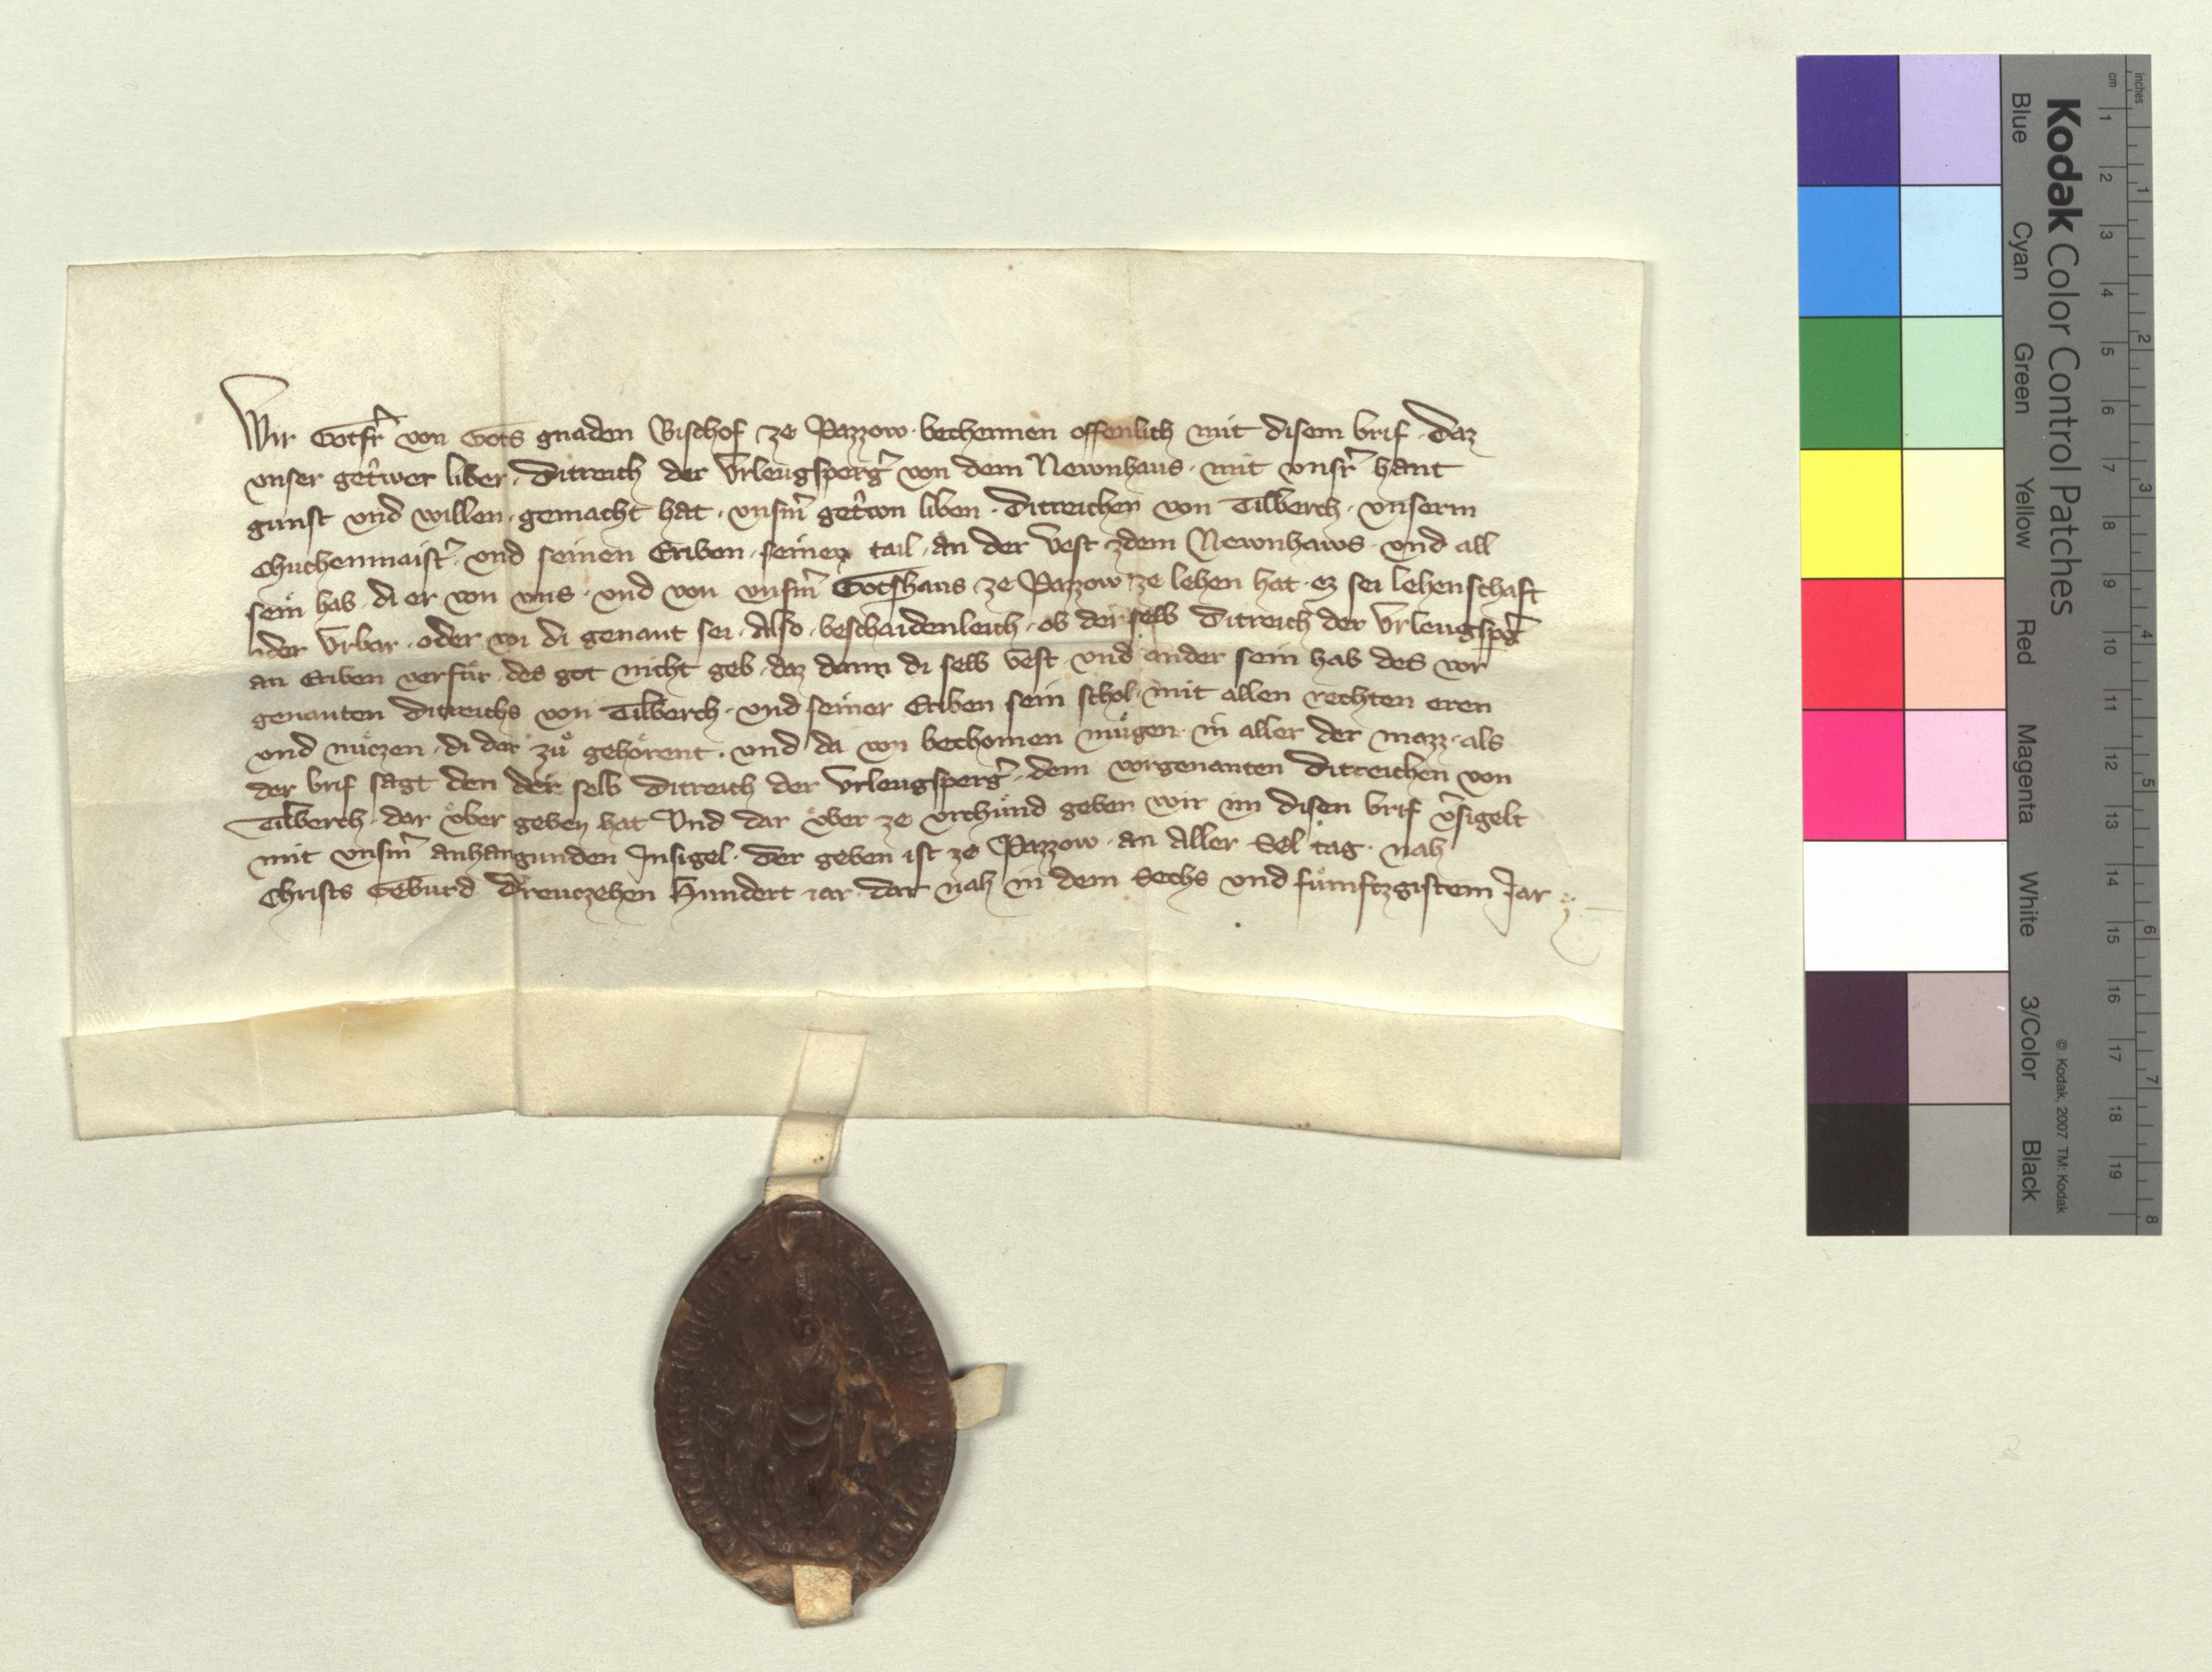 Wir Gotfr̄ von Gots gnaden Bischof ze Pazzow · bechennen offenlich mit disem brif · daz
vnser getˀwer liber · Ditreich der Vrleugsperḡ von dem Newnhaus · mit vnsr̄ hant
gunst vnd willen · gemacht hat · vnsm̄ getˀwn liben · Ditreichen von Tilberch · vnserm
chuchenmaistˀ · vnd seinen Eriben · seinen tail · an der Vest zdem Newnhaws · vnd all
sein hab · di er von vns · vnd von vnsm̄ Gotshaus ze Pazzow ze lehen hat · ez sei lehenschaft
oder Vrbar · oder wi di genant sei · Also · beschaidenleich · ob der selb Ditreich der Vrleugspḡ
an Eriben verfür · des got nicht geb · daz dann di selb Vest · vnd ander sein hab des vor
genanten Ditreichs von Tilberch · vnd seiner Eriben sein schol · mit allen rechten eren
vnd nützen · di dar zuͦ gehörent · vnd da von bechomen mügen · in aller der mazz · als
der brif sagt den der selb Ditreich der Vrleugsperḡ · dem vorgenanten Ditreichen von
Tilberch · dar über geben hat Vnd dar über ze vrchünd geben wir im disen brif vˀsigelt
mit vnsm̄ anhangunden Insigel · Der geben ist ze Pazzow · an Aller Sel tag · nah
Christs Gebürd Dreuczehen Hundert iar · dar nah in dem Sechs vnd fümftzgistem Jar
Kodak Color Control Patches
Blue Cyan Green Yellow Red Magenta White 3/Color Black
© Kodak, 2007 TM: Kodak
cm 1 2 3 4 5 6 7 8 9 10 11 12 13 14 15 16 17 18 19
inches 1 2 3 4 5 6 7 8